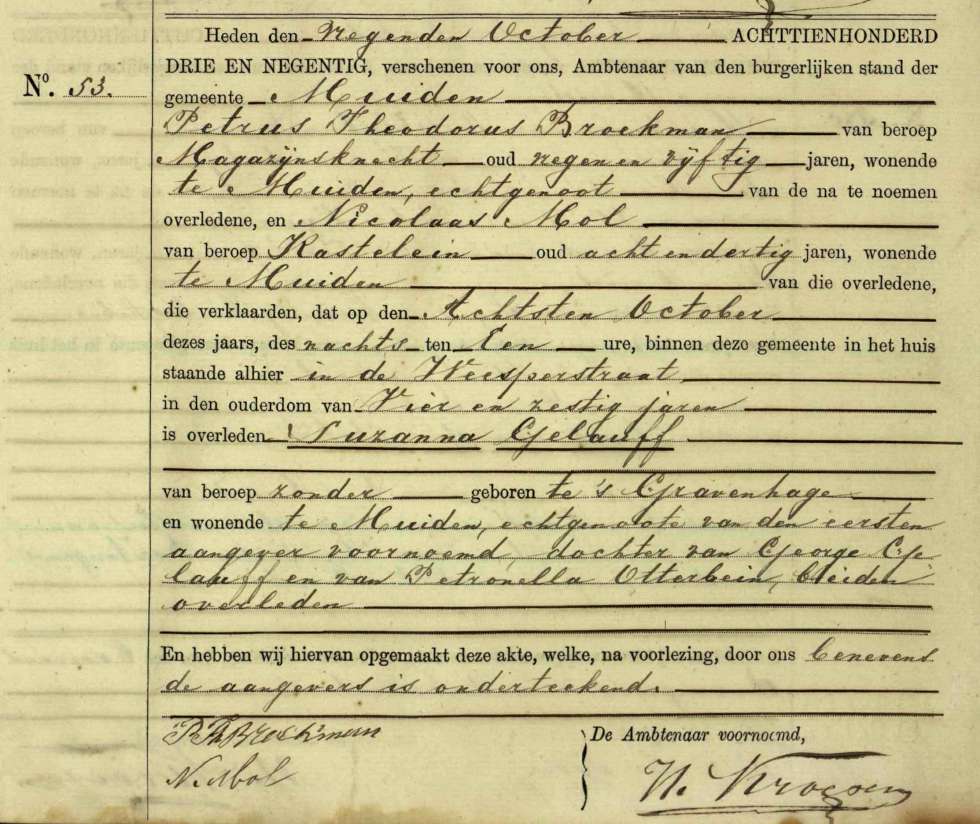 Heden den negenden October ACHTTIENHONDERD
DRIE EN NEGENTIG, verschenen voor ons, Ambtenaar van den burgerlijken stand der
No. 53.
gemeente Muiden
Petrus Theodorus Broekman van beroep
Magazijnsknecht oud negen en vijftig jaren, wonende
te Muiden, echtgenoot van de na te noemen
overledene, en Nicolaas Mol
van beroep Kastelein oud acht en dertig jaren, wonende
te Muiden van die overledene,
die verklaarden, dat op den Achtsten October
dezes jaars, des nachts ten Een ure, binnen deze gemeente in het huis
staande alhier in de Weesperstraat
in den ouderdom van Vier en zestig jaren
is overleden Suzanna Gelauff
van beroep zonder geboren te 's Gravenhage
en wonende te Muiden, echtgenoote van den eersten
aangever voornoemd, dochter van George Ge-
lauff en van Petronella Otterbein, beiden
overleden
En hebben wij hiervan opgemaakt deze akte, welke, na voorlezing, door ons benevens
de aangevers is onderteekend.
De Ambtenaar voornoemd,
P Th Broekman
N. Mol